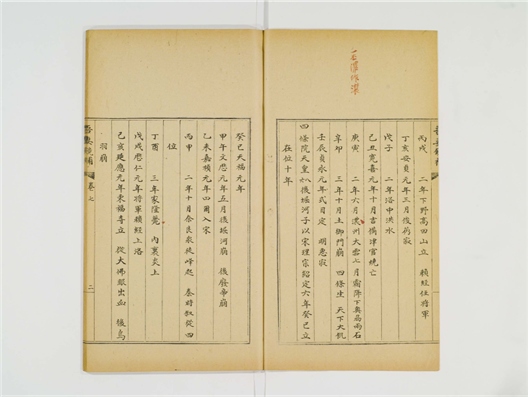 丙戌 二年下野高田山立 賴經任將軍
丁亥安貞元年三月後寂
戊子 二年洛中洪水
己丑寬喜元年十月吉備津宮燒亡
庚寅 二年六月濃州大雪七月霜降下奧雨石
辛卯 三年十月土御門崩 四條生 天下大飢
壬辰貞永元年式目定 明惠寂
四條院天皇後堀河子以宋理宗紹定六年癸巳立
在位十年
癸巳天福元年
甲午文歷元年五月後堀河崩 後廢帝崩
乙未嘉禎元年四爾入宋
丙申 二年十月良衆徒蜂起 泰時叙從四
位
丁酉 三年家隆薨 內裏炎上
戊戌曆仁元年將軍賴經上洛
己亥延應元年東福寺立 從大佛銀出 後鳥
羽崩
卷七
二